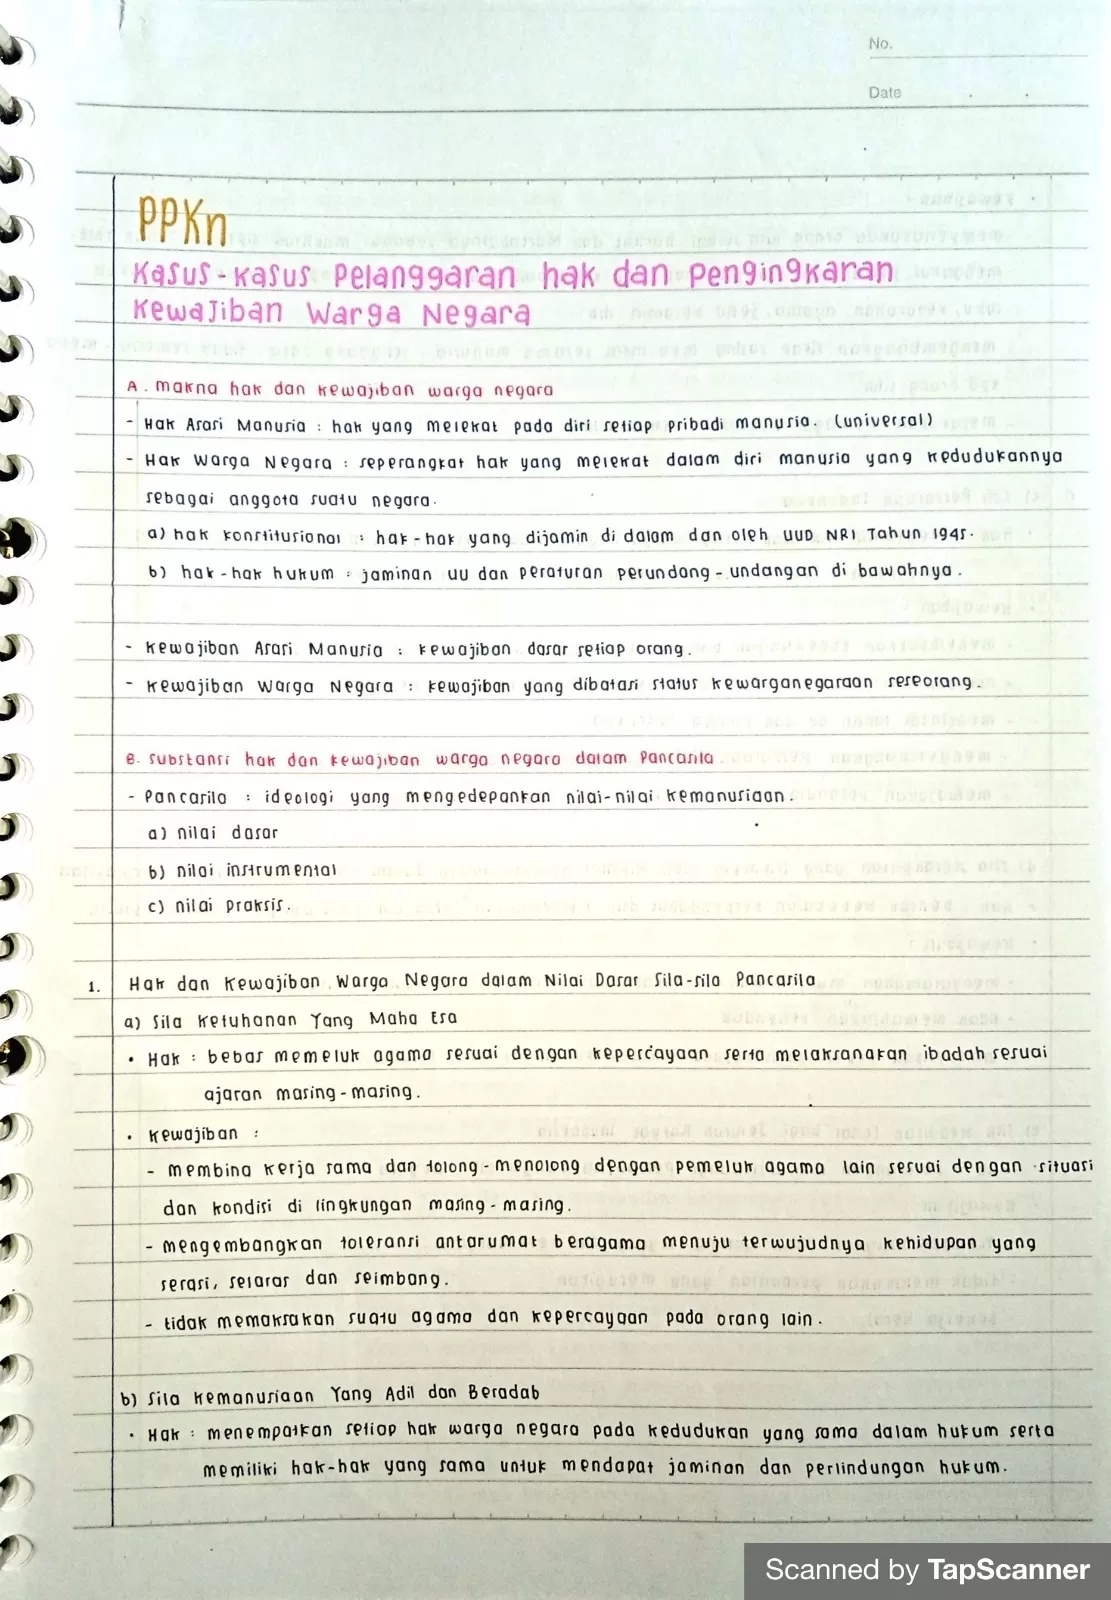 No.
Date
PPKn
Kasus-kasus Pelanggaran hak dan Pengingkaran
Kewajiban Warga Negara
A. makna hak dan kewajiban warga negara
- Hak Asasi Manusia : hak yang melekat pada diri setiap pribadi manusia. (universal)
- Hak Warga Negara : seperangkat hak yang melekat dalam diri manusia yang kedudukannya
sebagai anggota suatu negara.
a) hak konstitusional : hak-hak yang dijamin di dalam dan oleh UUD NRI Tahun 1945.
b) hak-hak hukum : jaminan UU dan peraturan perundang-undangan di bawahnya.
- Kewajiban Asasi Manusia : kewajiban dasar setiap orang.
- Kewajiban Warga Negara : kewajiban yang dibatasi status kewarganegaraan seseorang.
B. substansi hak dan kewajiban warga negara dalam Pancasila
- Pancasila : ideologi yang mengedepankan nilai-nilai kemanusiaan.
a) nilai dasar
b) nilai instrumental
c) nilai praksis.
1. Hak dan Kewajiban Warga Negara dalam Nilai Dasar Sila-sila Pancasila
a) Sila Ketuhanan Yang Maha Esa
• Hak : bebas memeluk agama sesuai dengan kepercayaan serta melaksanakan ibadah sesuai
ajaran masing-masing.
• Kewajiban :
- membina kerja sama dan tolong-menolong dengan pemeluk agama lain sesuai dengan situasi
dan kondisi di lingkungan masing-masing.
- mengembangkan toleransi antarumat beragama menuju terwujudnya kehidupan yang
serasi, selaras dan seimbang.
- tidak memaksakan suatu agama dan kepercayaan pada orang lain.
b) Sila Kemanusiaan Yang Adil dan Beradab
• Hak : menempatkan setiap hak warga negara pada kedudukan yang sama dalam hukum serta
memiliki hak-hak yang sama untuk mendapat jaminan dan perlindungan hukum.
Scanned by TapScanner